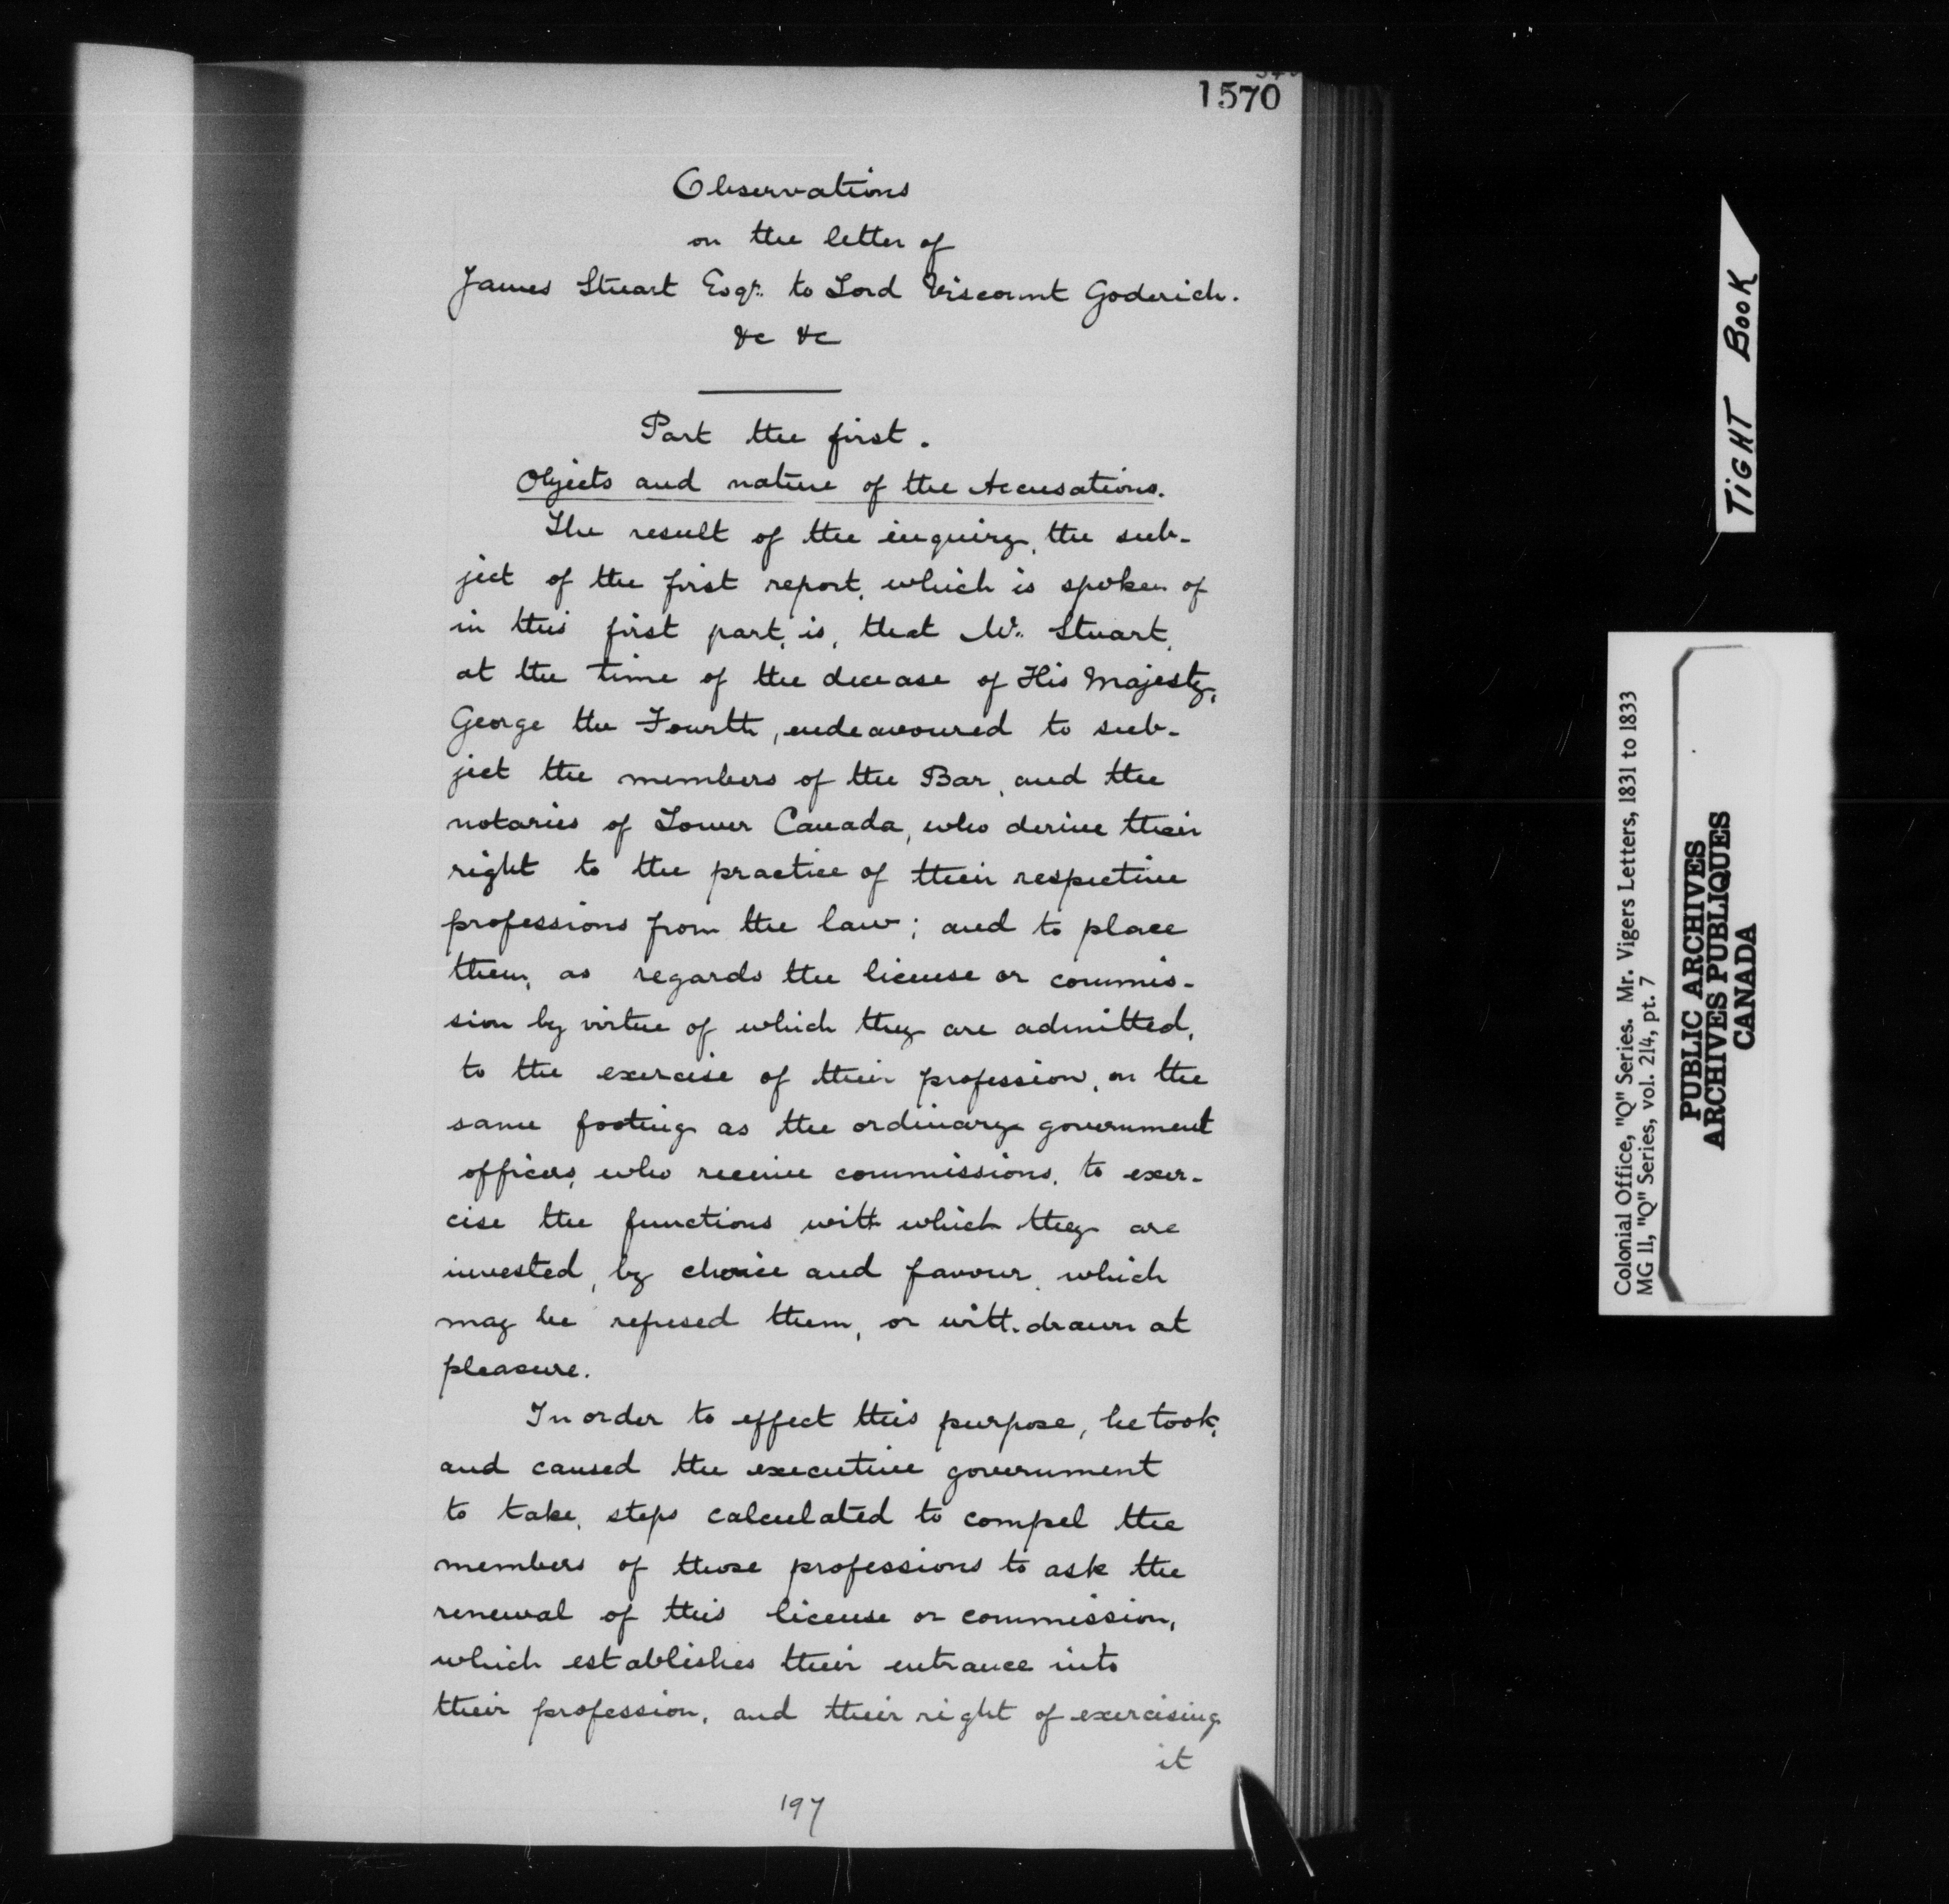 1570
Observations
on the letter of
James Stuart Esqr. to Lord Viscount Goderich.
&c &c
Part the first.
Objects and nature of the Accusations.
The result of the inquiry, the sub-
ject of the first report, which is spoken of
in this first part, is, that Mr. Stuart,
at the time of the decease of His Majesty,
George the Fourth, endeavoured to sub-
ject the members of the Bar, and the
notaries of Lower Canada, who derive their
right to the practice of their respective
professions from the law; and to place
them, as regards the license or commis-
sion by virtue of which they are admitted,
to the exercise of their profession, on the
same footing as the ordinary government
officers, who receive commissions, to exer-
cise the functions with which they are
invested, by choice and favour, which
may be refused them, or withdrawn at
pleasure.
In order to effect this purpose, he took,
and caused the executive government
to take, steps calculated to compel the
members of those professions to ask the
renewal of this license or commission,
which establishes their entrance into
their profession, and their right of exercising
it
197
TIGHT BOOK
Colonial Office, "Q" Series. Mr. Vigers Letters, 1831 to 1833
MG 11, "Q" Series, vol. 214, pt. 7
PUBLIC ARCHIVES
ARCHIVES PUBLIQUES
CANADA